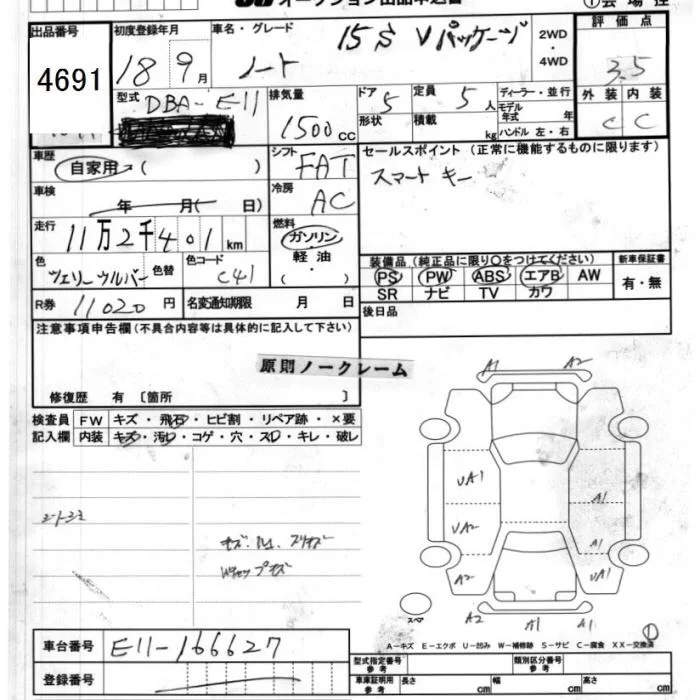 オークション出品申込書
①会場控
出品番号 初度登録年月 車名・グレード 15S Vパッケージ 2WD・4WD 評価点
4691 18年9月 ノート 3.5
型式 DBA-E11 排気量 1500cc ドア 5 定員 5人 ディーラー・並行 外装 内装
形状 積載 kg モデル年式 年 ハンドル 左・右 C C
車歴 自家用( ) シフト FAT セールスポイント(正常に機能するものに限ります)
車検 年 月( 日) 冷房 AC スマートキー
走行 11万2千401km 燃料 ガソリン
軽油
( ・ )
色 色替 色コード C41 装備品(純正品に限り〇をつけてください) 新車保証書
PS PW ABS エアB AW 有・無
SR ナビ TV カワ
R券 11020円 名変通知期限 月 日 後日品
注意事項申告欄(不具合内容等は具体的に記入して下さい)
原則ノークレーム
修復歴 有 〔箇所 〕
検査員 FW キズ・飛石・ヒビ割・リペア跡・×要
記入欄 内装 キズ・汚レ・コゲ・穴・スレ・キレ・破レ
A1 A2
UA1 A1
UA2 A1
A2 UA1
スペア A2 A1 A1
①
A-キズ E-エクボ U-凹み W-補修跡 S-サビ C-腐食 XX-交換済
車台番号 E11-166627
登録番号
型式指定番号 参考 類別区分番号 参考
車庫証明用 参考 長さ cm 幅 cm 高さ cm